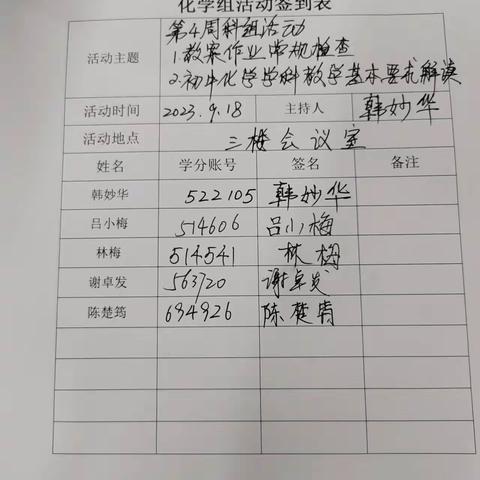 化学组活动签到表
活动主题
第4周科组活动
1.教案作业常规检查
2.初中化学学科教学基本要求解读
活动时间 2023.9.18 主持人 韩妙华
活动地点 三楼会议室
姓名 学分账号 签名 备注
韩妙华 522105 韩妙华
吕小梅 514606 吕小梅
林梅 514541 林梅
谢卓发 563720 谢卓发
陈楚筠 694926 陈楚筠